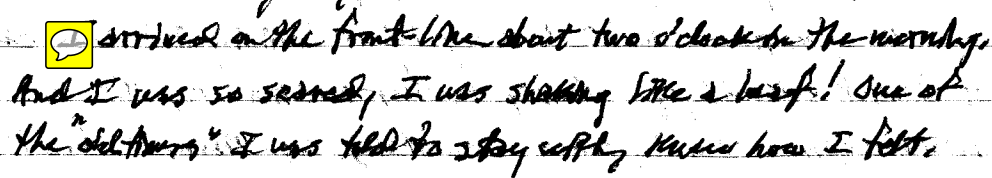 I arrived on the front line about two o'clock in the morning.
And I was so scared, I was shaking like a leaf! One of
the "old timers" I was told to stay with, knew how I felt.